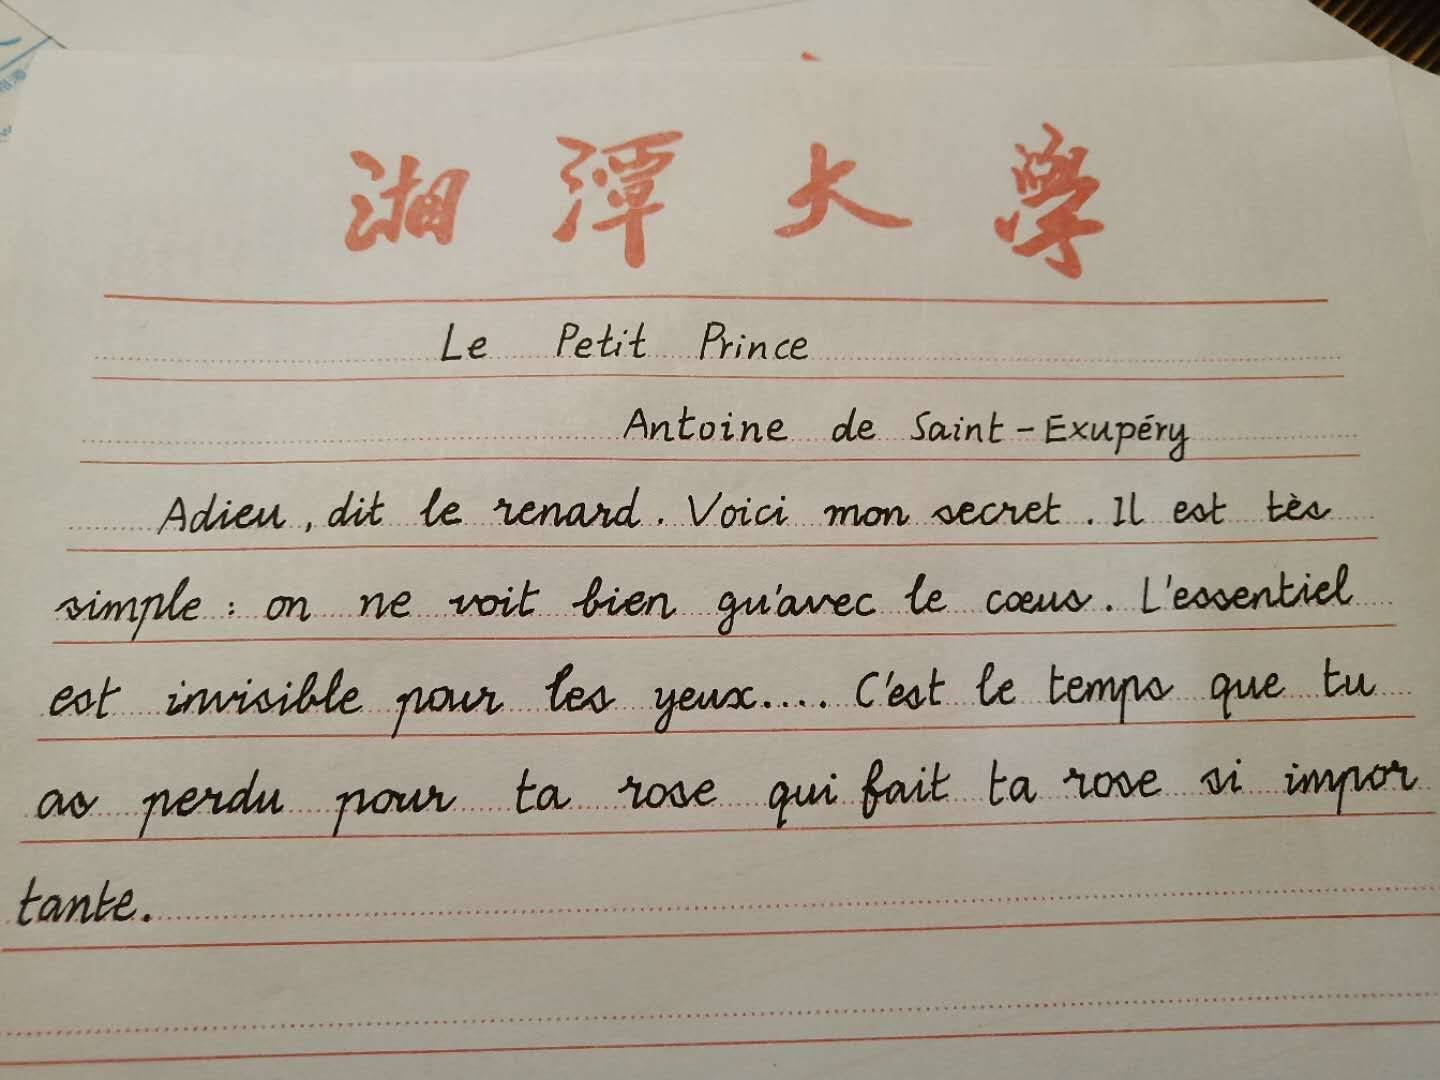 湘潭大學
Le Petit Prince
Antoine de Saint-Exupéry
Adieu, dit le renard. Voici mon secret. Il est tès
simple : on ne voit bien qu'avec le cœus. L'essentiel
est invisible pour les yeux.... C'est le temps que tu
as perdu pour ta rose qui fait ta rose si impor
tante.